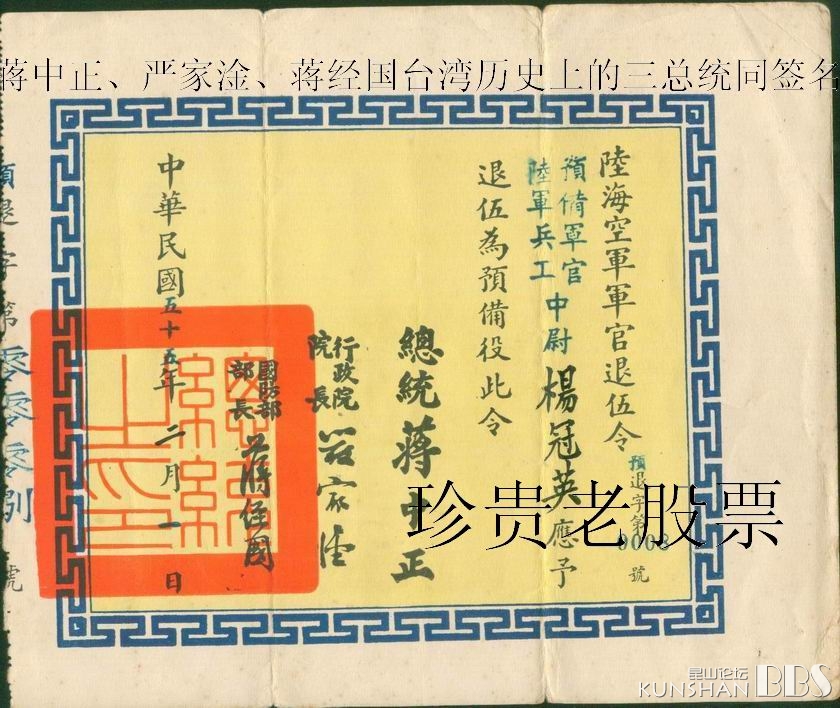 蒋中正、严家淦、蒋经国台湾历史上的三总统同签名
陸海空軍軍官退伍令
預退字第0008號
預備軍官
陸軍兵工
中尉楊冠英應予
退伍為預備役此令
總統蔣中正
行政院院長嚴家淦
國防部部長蔣經國
中華民國五十五年二月一日
總統之印
預退字第零零零捌號
珍贵老股票
昆山论坛
KUNSHAN BBS